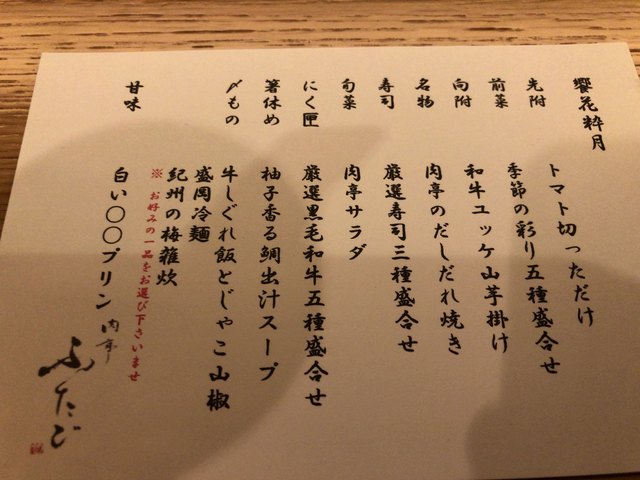 饗花粋月
先附　トマト切っただけ
前菜　季節の彩り五種盛合せ
向附　和牛ユッケ山芋掛け
名物　肉亭のだしだれ焼き
寿司　厳選寿司三種盛合せ
旬菜　肉亭サラダ
にく匣　厳選黒毛和牛五種盛合せ
箸休め　柚子香る鯛出汁スープ
〆もの　牛しぐれ飯とじゃこ山椒
盛岡冷麺
紀州の梅雑炊
※ お好みの一品をお選び下さいませ
甘味　白い〇〇プリン
肉亭 ふたご